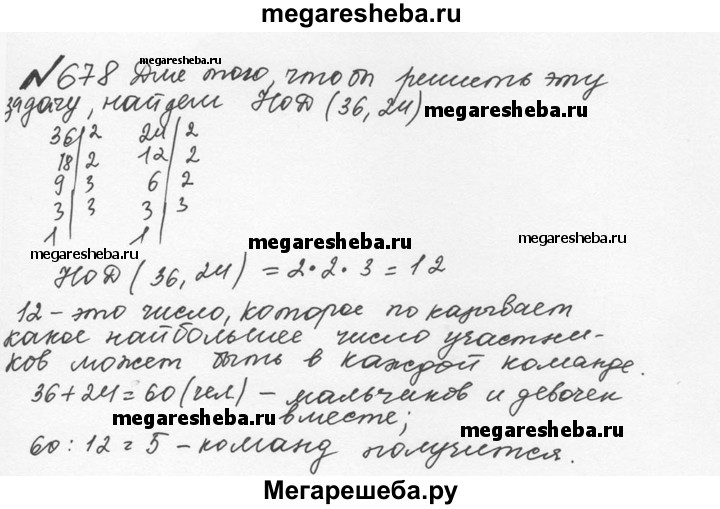 megaresheba.ru
№678 Для того, чтоб решить эту
megaresheba.ru
задачу, найдем НОД (36, 24)
megaresheba.ru
36 | 2 24 | 2
18 | 2 12 | 2
9 | 3 6 | 2
3 | 3 3 | 3
1 | 1 |
megaresheba.ru
megaresheba.ru
megaresheba.ru
НОД (36, 24) = 2·2·3 = 12
12 - это число, которое показывает
какое наибольшее число участни-
ков может быть в каждой команде.
36+24=60 (чел) - мальчиков и девочек
megaresheba.ru
вместе;
megaresheba.ru
60 : 12 = 5 - команд получится.
Мегарешеба.ру